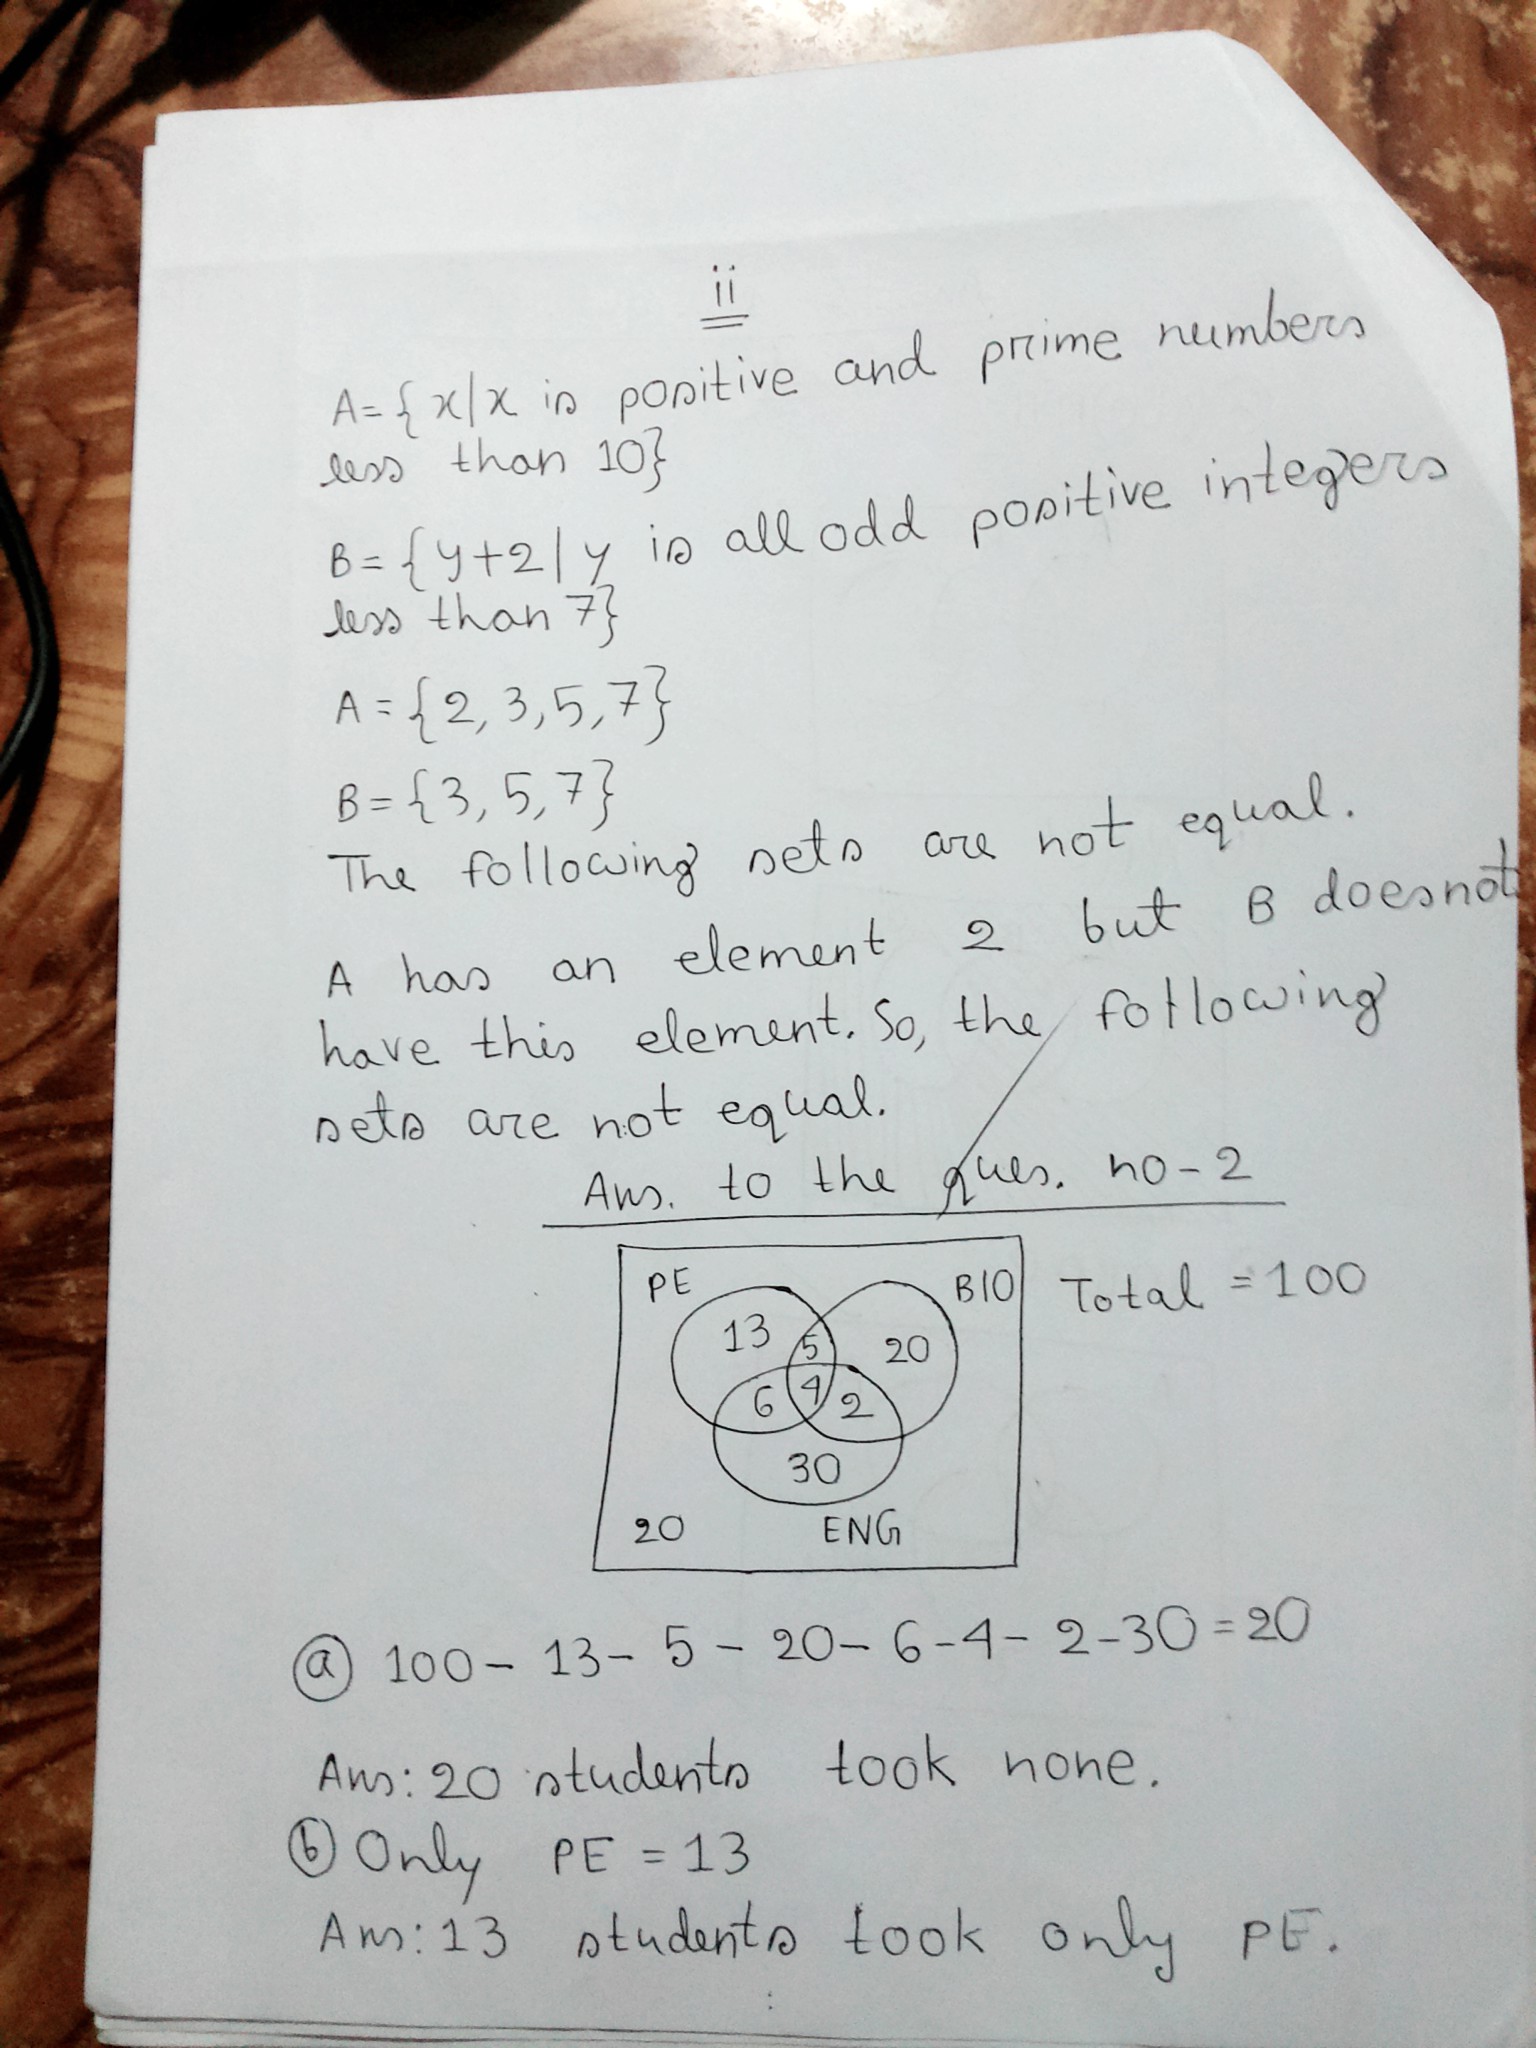 ii
A={x|x is positive and prime numbers
less than 10}
B={y+2|y is all odd positive integers
less than 7}
A={2,3,5,7}
B={3,5,7}
The following sets are not equal.
A has an element 2 but B doesnot
have this element. So, the following
sets are not equal.
Ans. to the ques. no-2
PE BIO Total = 100
13 5 20
6 4 2
30
20 ENG
ⓐ 100- 13- 5 - 20- 6-4- 2-30=20
Ans: 20 students took none.
ⓑ Only PE = 13
Ans: 13 students took only PE.